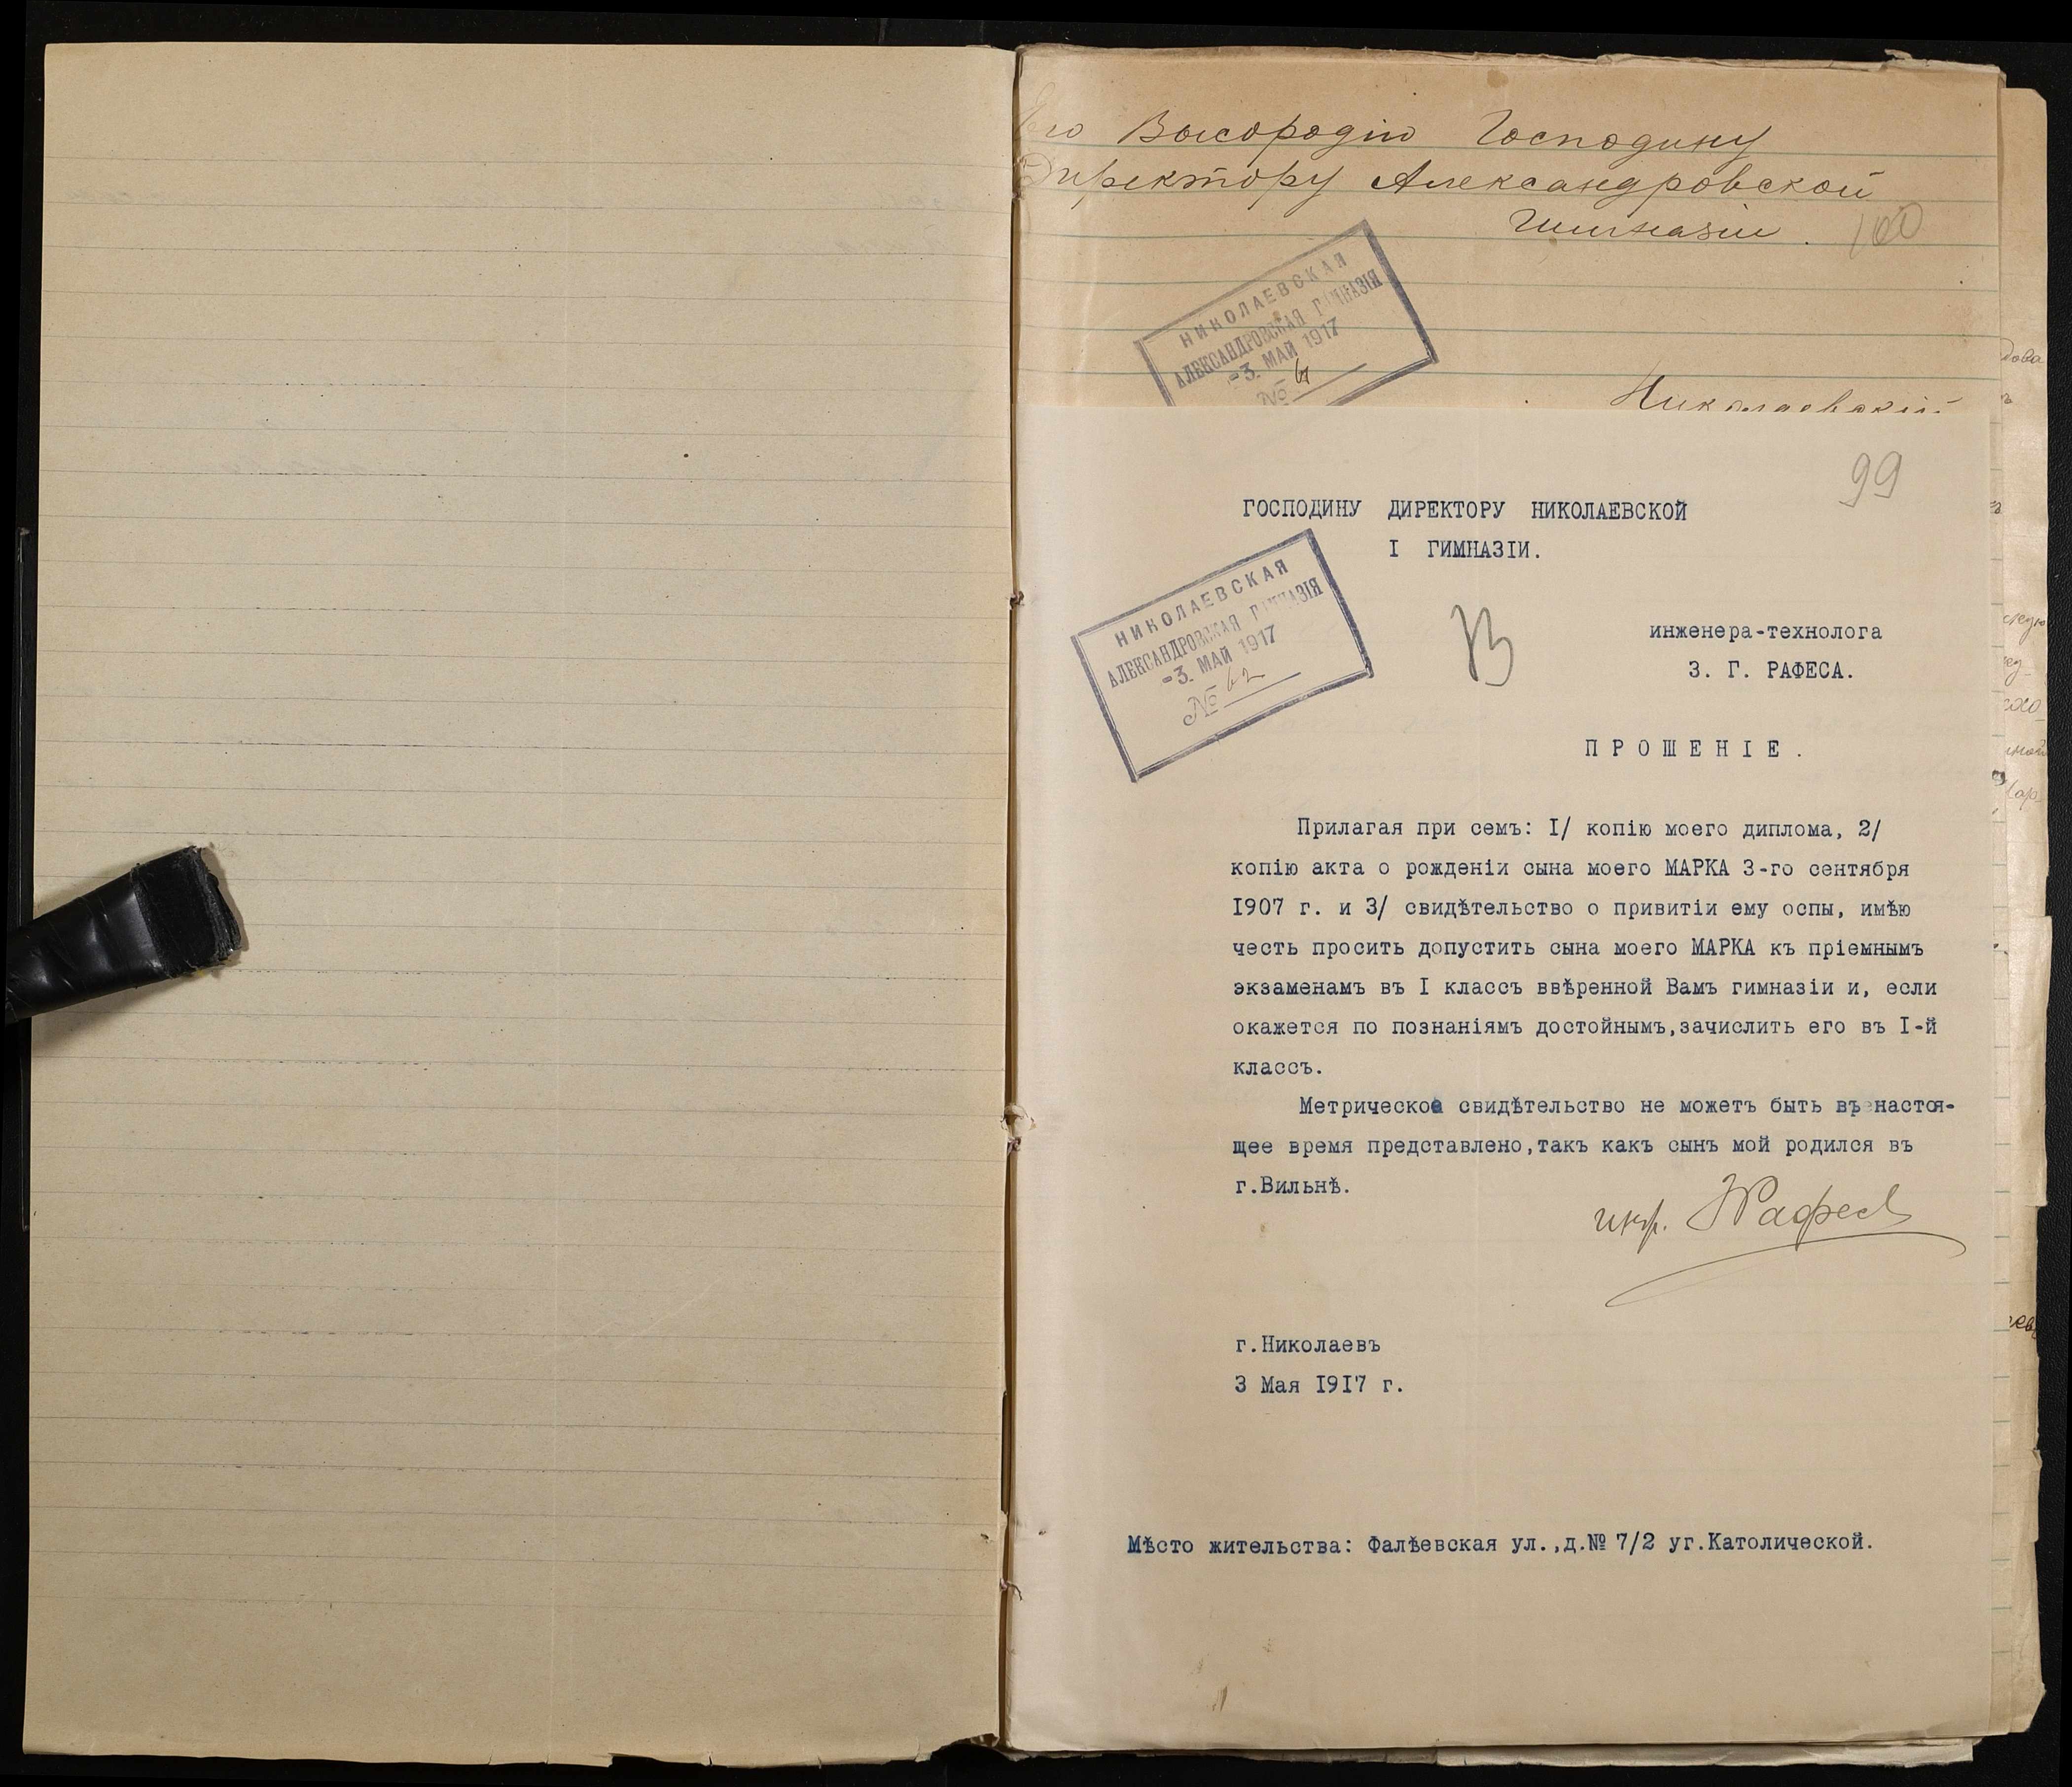 Его Высородію Господину
Директору Александровской
Гимназіи.
100
НИКОЛАЕВСКАЯ
АЛЕКСАНДРОВСКАЯ ГИМНАЗІЯ
-3. МАЙ 1917
№ 61
Николаевскій
99
ГОСПОДИНУ ДИРЕКТОРУ НИКОЛАЕВСКОЙ
I ГИМНАЗІИ.
НИКОЛАЕВСКАЯ
АЛЕКСАНДРОВСКАЯ ГИМНАЗІЯ
-3. МАЙ 1917
№ 62
инженера-технолога
З. Г. РАФЕСА.
ПРОШЕНІЕ.
Прилагая при семъ: I/ копію моего диплома, 2/
копію акта о рожденіи сына моего МАРКА 3-го сентября
1907 г. и 3/ свидѣтельство о привитіи ему оспы, имѣю
честь просить допустить сына моего МАРКА къ пріемнымъ
экзаменамъ въ I классъ ввѣренной Вамъ гимназіи и, если
окажется по познаніямъ достойнымъ,зачислить его въ I-й
классъ.
Метрическое свидѣтельство не можетъ быть въ настоя-
щее время представлено,такъ какъ сынъ мой родился въ
г.Вильнѣ.
инж. ЗРафес
г.Николаевъ
3 Мая 1917 г.
Мѣсто жительства: Фалѣевская ул.,д.№ 7/2 уг.Католической.